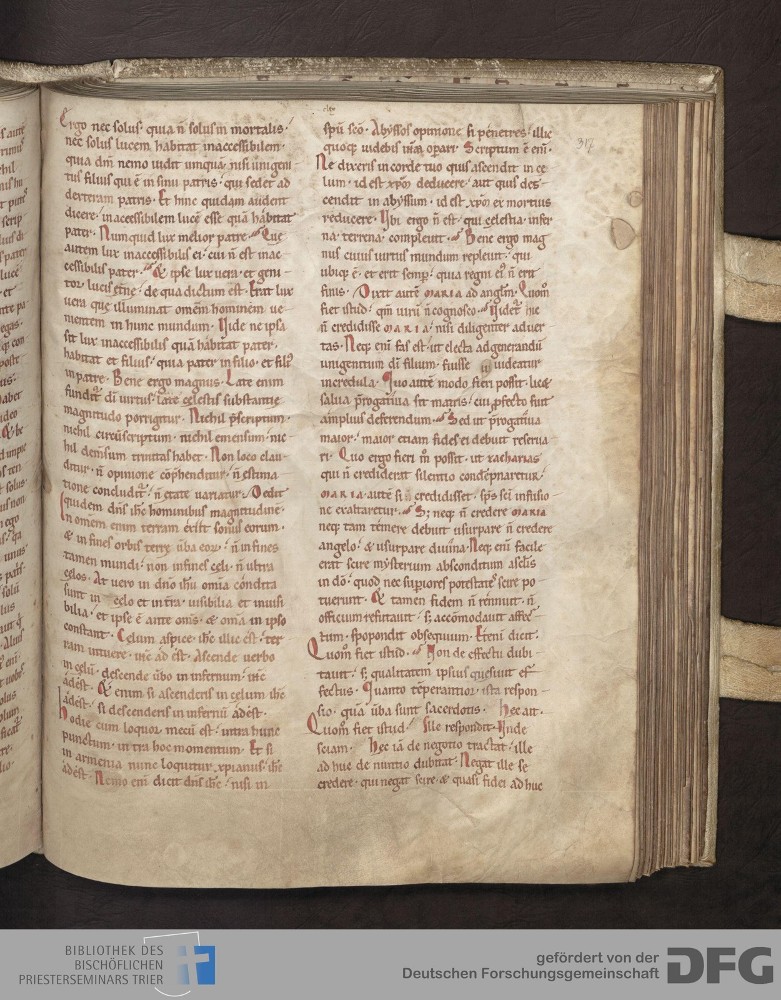 Ergo nec solus· quia n̄ solusm̄ mortalis·
nec solus lucem habitat inaccessibilem·
quia dm̄ nemo uidit unquā· nisi unigeni-
tus filius qui ē in sinu patris· qui sedet ad
dexteram patris· Et hinc quidam audent
dicere· inaccessibilem lucē esse quā habitat
pater· Numquid lux melior patre· Cui
autem lux inaccessibilis ei· cui n̄ est inac
cessibilis pater· & ipse lux uera· et geni-
tor lucis etne· de qua dictum est· Erat lux
uera que illuminat omem̄ hominem ue
nientem in hunc mundum· Uide ne ipsa
sit lux inaccessibilis quā habitat pater·
habitat et filius· quia pater in filio· et filiꝰ
in patre· Bene ergo magnus· Late enim
fundit̄ di uirtus· late celestis substantie
magnitudo porrigitur· Nichil p̄scriptum·
nichil circūscriptum· nichil emensum· nic-
hil dem̄sum trinitas habet· Non loco clau-
ditur· n̄ opinione cōp̄henditur· n̄ estima
tione concludit̄· n̄ etate uariatur· Dedit
quidem dn̄s ih̄c hominibus magnitudinē·
In omem̄ enim terram exist sonus eorum·
& in fines orbis terre uba eoꝝ· n̄ in fines
tamen mundi· non in fines celi· n̄ ultra
celos· At uero in dn̄o ih̄u omīa condita
sunt in celo et in tr̄a· uisibilia et inuisi
bilia· et ipse ē ante om̄s· & omīa in ipso
constant· Celum aspice· ih̄c illic est· ter
ram intuere· ih̄c ad ēst· Ascende uerbo
in celū· descende ūbo in infernum· ih̄c
adēst· & enim si ascenderis in celum ih̄c
adēst· si descenderis in infernū adēst·
hodie cum loquor mecū est· intra hunc
punctum· intra hoc momentum· Et si
in armenia nunc loquitur xpianus· ih̄c
adēst· Nemo enī dicit dn̄s ih̄c· nisi in
317
sp̄u sc̄o· Abyssos opinione si penetres· illic
quoq; uidebis ih̄m operari· Scriptum ē enī·
Ne dixeris in corde tuo quis ascendit in ce
lum· id est xp̄m deducere· aut quis des-
cendit in abyssum· id est xp̄m ex mortuis
reducere· Ubi ergo n̄ est· qui celestia· infer
na· terrena· compleuit· Bene ergo mag
nus cuius uirtus mundum repleuit· qui
ubiq; ē· et erit semp̄· quia regni eiꝰ n̄ erit
finis· Dixit autē MARIA ad anglm̄· Quom̄
fiet istud· qm̄ uirū n̄ cognosco· Uidet̄ hic
n̄ credidisse MARIA· nisi diligenter aduer
tas· Neq; enī fas est· ut electa ad generandū
unigenitum di filium· fuisse uideatur
incredula· Quo autē modo fieri possit· licet
salua p̄rogatiua sit matris· cui p̄fecto fuit
amplius deferendum· Sed ut p̄rogatiua
maior· maior etiam fides ei debuit reserua
ri· Quo ergo fieri m̄ possit· ut zacharias
qui n̄ crediderit silentio condēpnaretur·
MARIA autē si n̄ credidisset· sp̄s sc̄i infusio-
ne exaltaretur· S; neq; n̄ credere MARIA
neq; tam temere debuit usurpare n̄ credere
angelo· & usurpare diuina· Neq; enī facile
erat scire mysterium absconditum asclis
in dō· quod nec supiores potestates̄ scire po
tuerunt· & tamen fidem n̄ rennuit· n̄
officium refutauit· s; accōmodauit affec̄
tum· spopondit obsequium· Etenī dicit·
Quom̄ fiet istud· Non de effectu dubi-
tauit· s; qualitatem ipsius quesiuit ef-
fectus· Quanto tēperantior· ista respon-
sio· quā uba sunt sacerdotis· hec ait·
Quom̄ fiet istud· Ille respondit· Unde
sciam· hec iā de negotio tractat· ille
ad huc de nuntio dubitat· Negat ille se
credere· qui negat scire· & quasi fidei ad huc
BIBLIOTHEK DES
BISCHÖFLICHEN
PRIESTERSEMINARS TRIER
gefördert von der
Deutschen Forschungsgemeinschaft
DFG